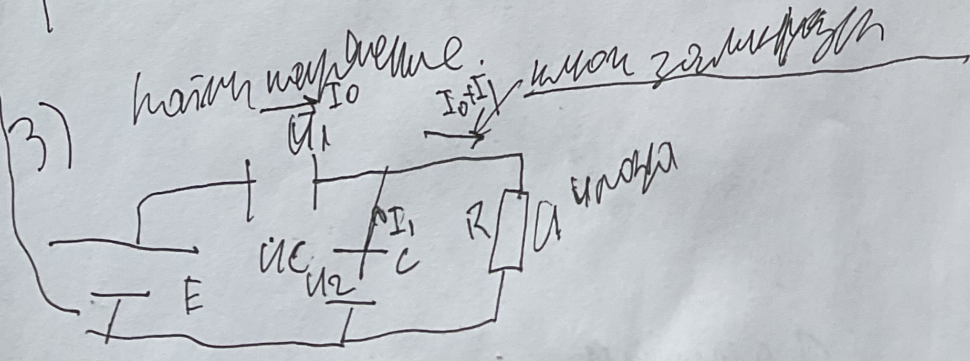 3) Найти напряжение. ключ замкнули
I0
U1
I0+I1
I1
R
U
4C
U2
C
E